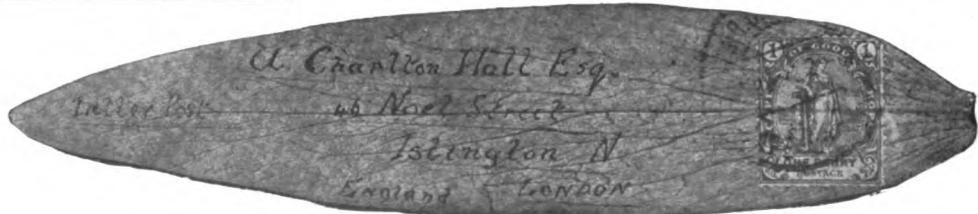 Charlton Hall Esq.
Letter Post
46 Noel Street
Islington N.
England LONDON
OF GOOD
ONE PENNY
POSTAGE